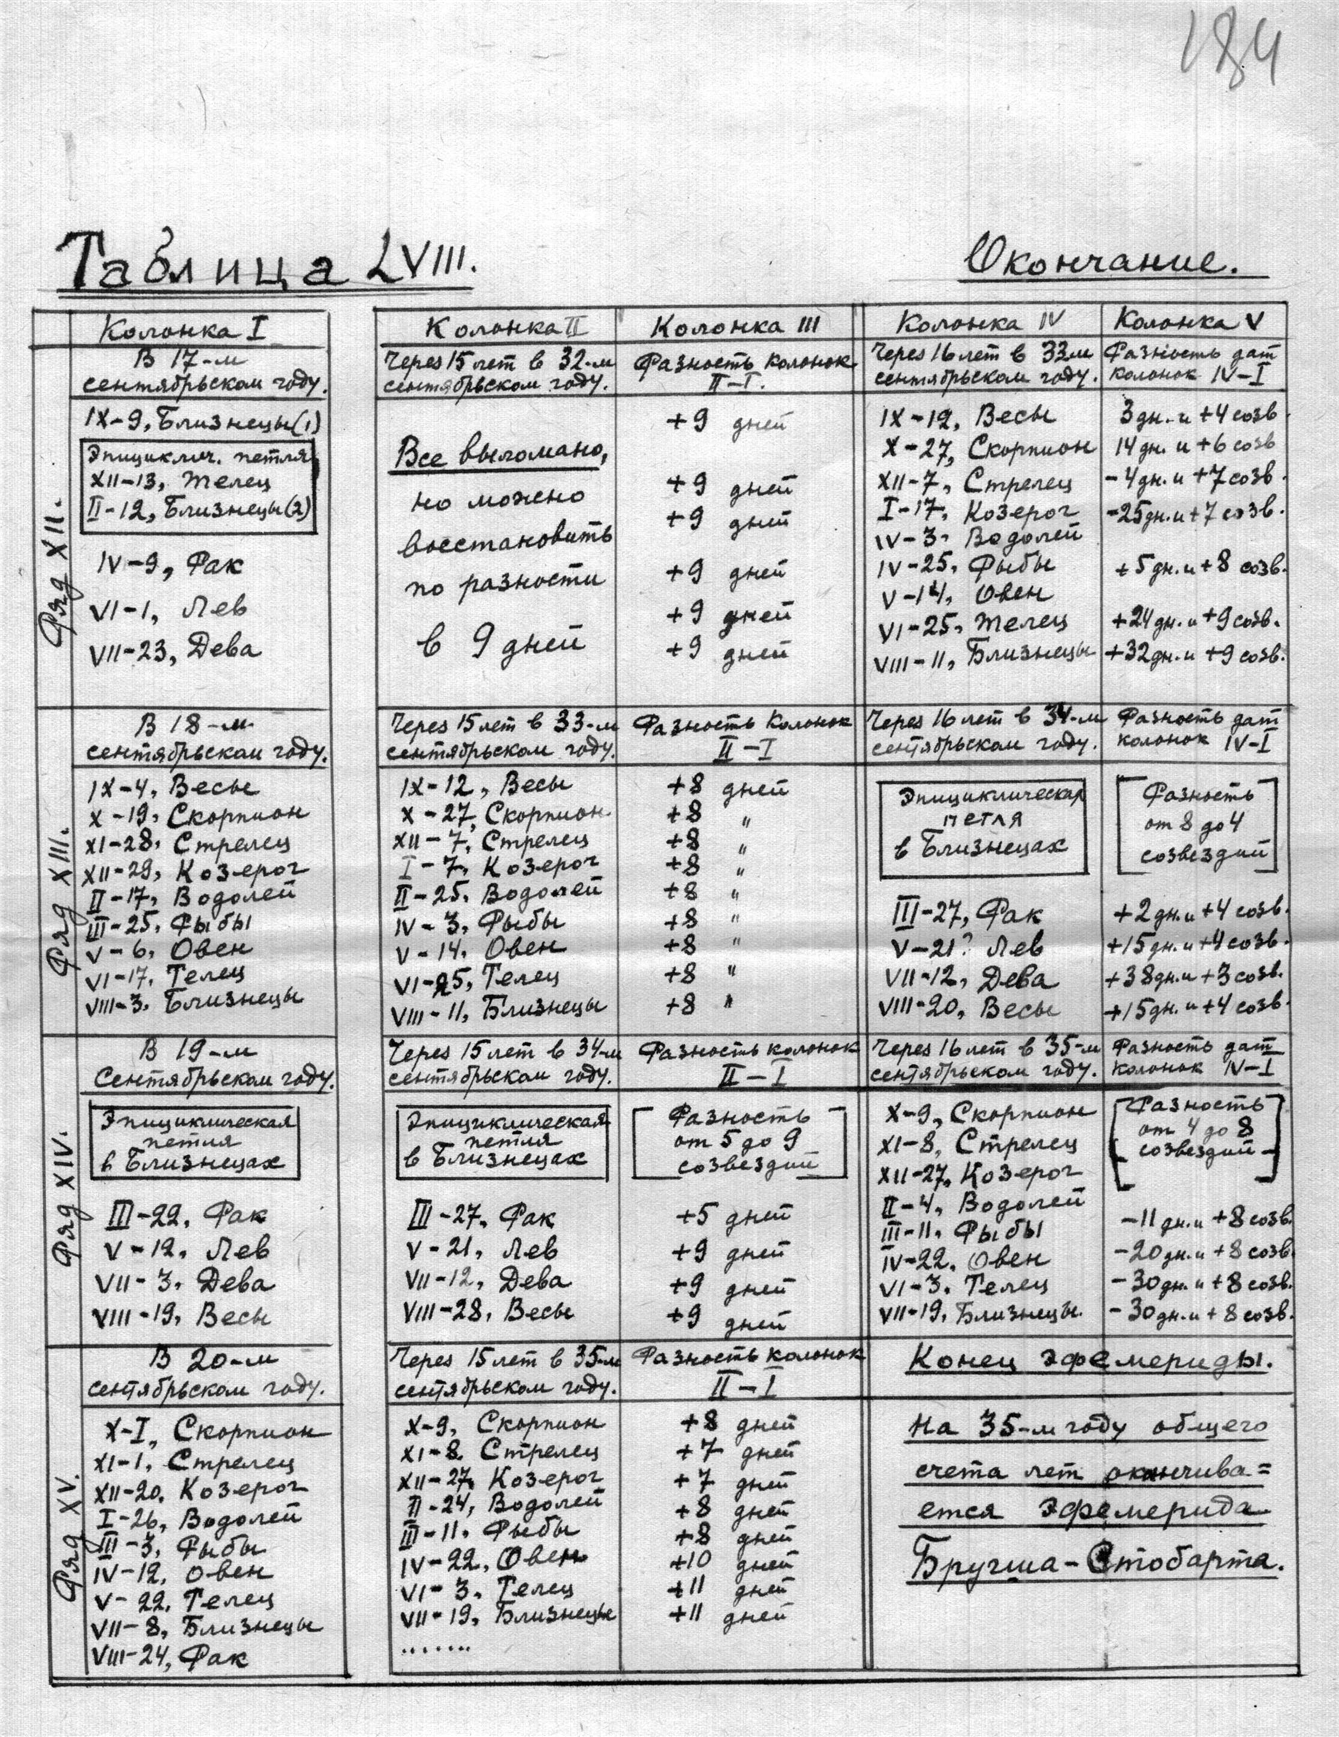 184
Таблица LVIII.
Окончание.
Колонка I
Колонка II
Колонка III
Колонка IV
Колонка V
Ряд XII.
В 17-м
сентябрьском году.
Через 15 лет в 32-м
сентябрьском году.
Разность колонок
II-I.
Через 16 лет в 33м
сентябрьском году.
Разность дат
колонок IV-I
IX-9, Близнецы(1)
Эпициклич. петля
XII-13, Телец
II-12, Близнецы(2)
IV-9, Рак
VI-1, Лев
VII-23, Дева
Все выломано,
но можно
восстановить
по разности
в 9 дней
+9 дней
+9 дней
+9 дней
+9 дней
+9 дней
+9 дней
IX-12, Весы
X-27, Скорпион
XII-7, Стрелец
I-17, Козерог
IV-3, Водолей
IV-25, Рыбы
V-14, Овен
VI-25, Телец
VIII-11, Близнецы
3дн. и +4 созв.
14дн. и +6 созв
-4дн. и +7 созв.
-25дн. и +7 созв.
+5дн. и +8 созв.
+24дн. и +9 созв.
+32дн. и +9 созв.
Ряд XIII.
В 18-м
сентябрьском году.
Через 15 лет в 33-м
сентябрьском году.
Разность Колонок
II-I
Через 16 лет в 34-м
сентябрьском году.
Разность дат
колонок IV-I
IX-4, Весы
X-19, Скорпион
XI-28, Стрелец
XII-29, Козерог
II-17, Водолей
III-25, Рыбы
V-6, Овен
VI-17, Телец
VIII-3, Близнецы
IX-12, Весы
X-27, Скорпион
XII-7, Стрелец
I-7, Козерог
II-25, Водолей
IV-3, Рыбы
V-14, Овен
VI-25, Телец
VIII-11, Близнецы
+8 дней
+8 "
+8 "
+8 "
+8 "
+8 "
+8 "
+8 "
+8 "
Эпициклическая
петля
в Близнецах
III-27, Рак
V-21? Лев
VII-12, Дева
VIII-20, Весы
Разность
от 8 до 4
созвездий
+2дн. и +4 созв.
+15дн. и +4 созв.
+38дн. и +3 созв.
+15дн. и +4 созв.
Ряд XIV.
В 19-м
Сентябрьском году.
Через 15 лет в 34-м
сентябрьском году.
Разность колонок
II-I
Через 16 лет в 35-м
сентябрьском году.
Разность дат
колонок IV-I
Эпициклическая
петля
в Близнецах
III-22, Рак
V-12, Лев
VII-3, Дева
VIII-19, Весы
Эпициклическая
петля
в Близнецах
III-27, Рак
V-21, Лев
VII-12, Дева
VIII-28, Весы
Разность
от 5 до 9
созвездий
+5 дней
+9 дней
+9 дней
+9 дней
X-9, Скорпион
XI-8, Стрелец
XII-27, Козерог
II-4, Водолей
III-11, Рыбы
IV-22, Овен
VI-3, Телец
VII-19, Близнецы.
Разность
от 4 до 8
созвездий
-11дн. и +8 созв.
-20дн. и +8 созв.
-30дн. и +8 созв.
-30дн. и +8 созв.
Ряд XV.
В 20-м
сентябрьском году.
Через 15 лет в 35-м
сентябрьском году.
Разность колонок
II-I
Конец эфемериды.
X-I, Скорпион
XI-1, Стрелец
XII-20, Козерог
I-26, Водолей
III-3, Рыбы
IV-12, Овен
V-22, Телец
VII-8, Близнецы
VIII-24, Рак
X-9, Скорпион
XI-8 Стрелец
XII-27, Козерог
II-24, Водолей
III-11, Рыбы
IV-22, Овен
VI-3, Телец
VII-19, Близнецы
.......
+8 дней
+7 дней
+7 дней
+8 дней
+8 дней
+10 дней
+11 дней
+11 дней
На 35-м году общего
счета лет оканчива=
ется эфемерида
Бругша-Стобарта.